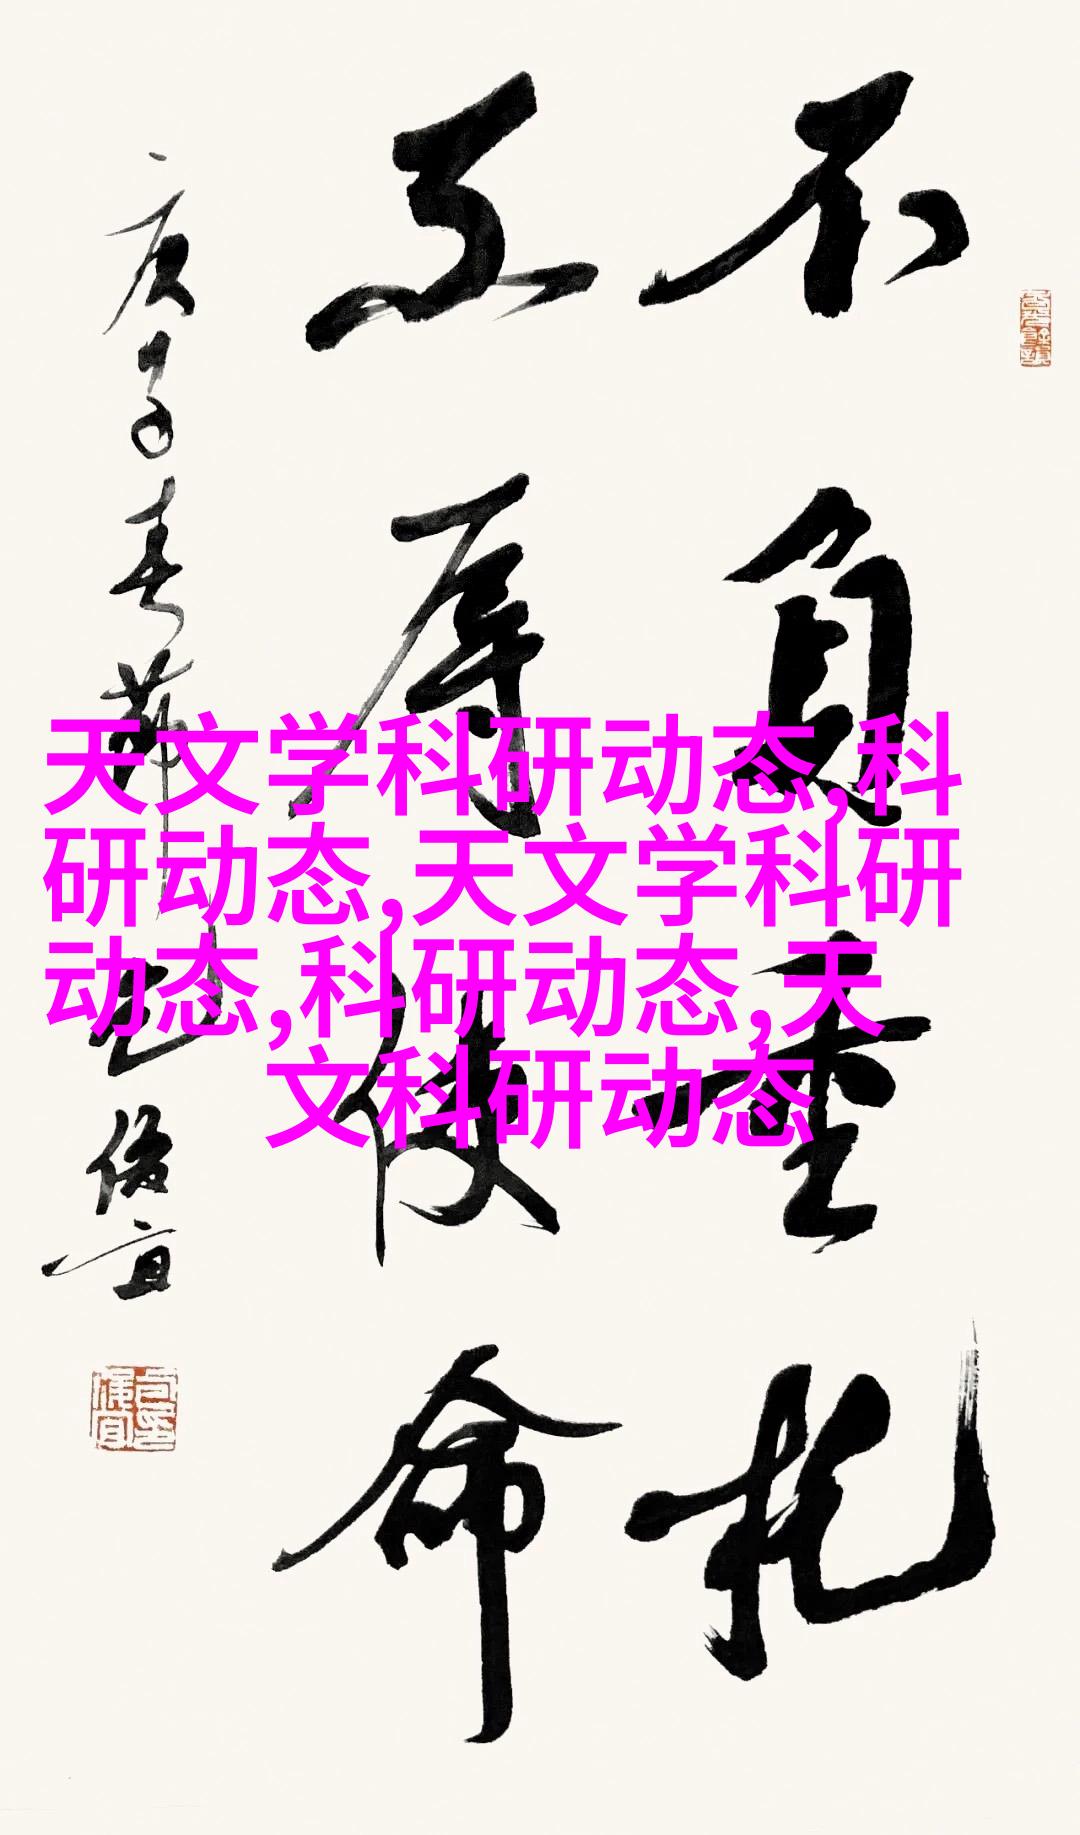 不负重托
不辱使命
庚子春节
书俊宜
天文学科研动态,科
研动态,天文学科研
动态,科研动态,天
文科研动态